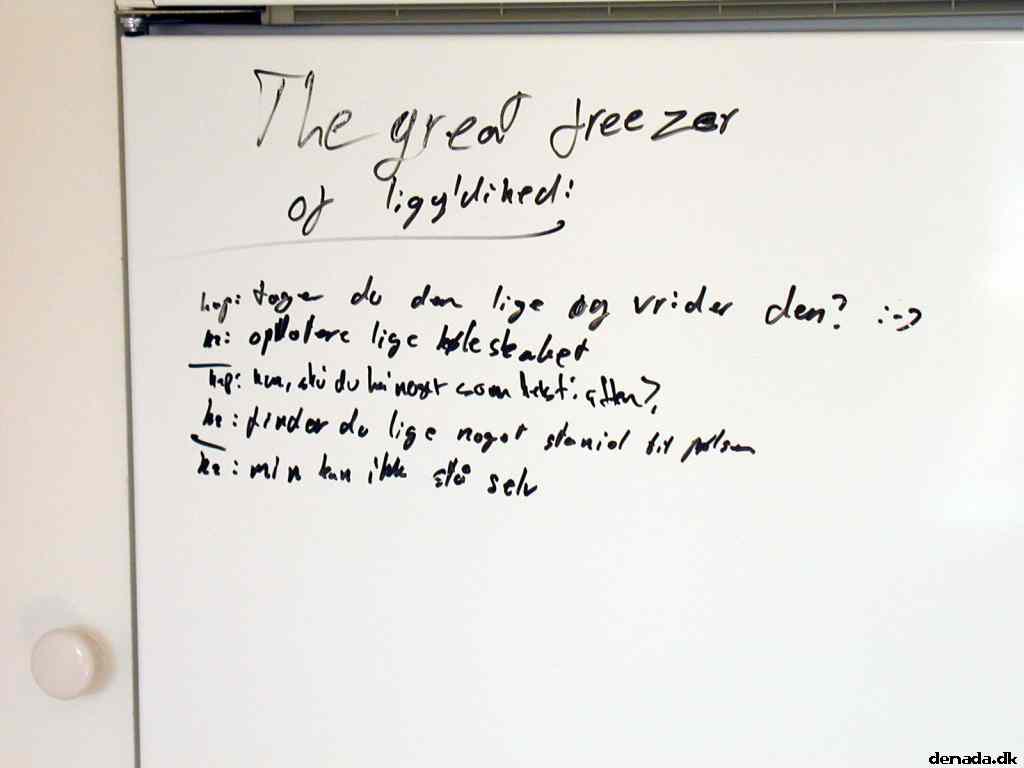 The great freezer
of ligy'dihed:
hap: tager du den lige og vrider den? :-)
kr: opdatere lige køleskabet
hap: hun, du noget som tekst i aften?
kr: finder du lige noget staniol til pølsen
kr: min kan ikk stå selv
denada.dk